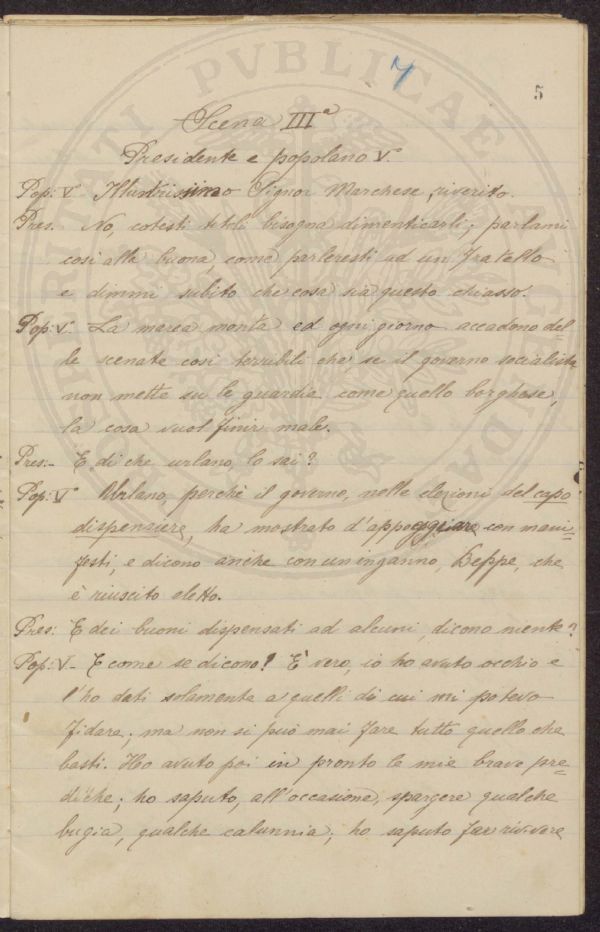 7
5
Scena IIIª
Presidente e popolano Vº
Pop: Vº Illustrissimo Signor Marchese, riverito.
Pres. No, cotesti titoli bisogna dimenticarli; parlami
così alla buona, come parleresti ad un fratello
e dimmi subito che cosa sia questo chiasso.
Pop: Vº. La marea monta ed ogni giorno accadono del-
le scenate così terribili che, se il governo socialista
non mette su le guardie come quello borghese,
la cosa vuol finir male.
Pres:- E di che urlano, lo sai?
Pop: Vº Urlano, perchè il governo, nelle elezioni del capo
dispensiere, ha mostrato d'appoggiare con mani=
festi, e dicono anche con un inganno, Beppe, che
è riuscito eletto.
Pres: E dei buoni dispensati ad alcuni, dicono niente?
Pop: V- E come se dicono! È vero, io ho avuto occhio e
l'ho dati solamente a quelli di cui mi potevo
fidare; ma non si può mai fare tutto quello che
basti. Ho avuto poi in pronto le mie brave pre=
diche; ho saputo, all'occasione, spargere qualche
bugia, qualche calunnia; ho saputo far rivivere
PVBLICAE